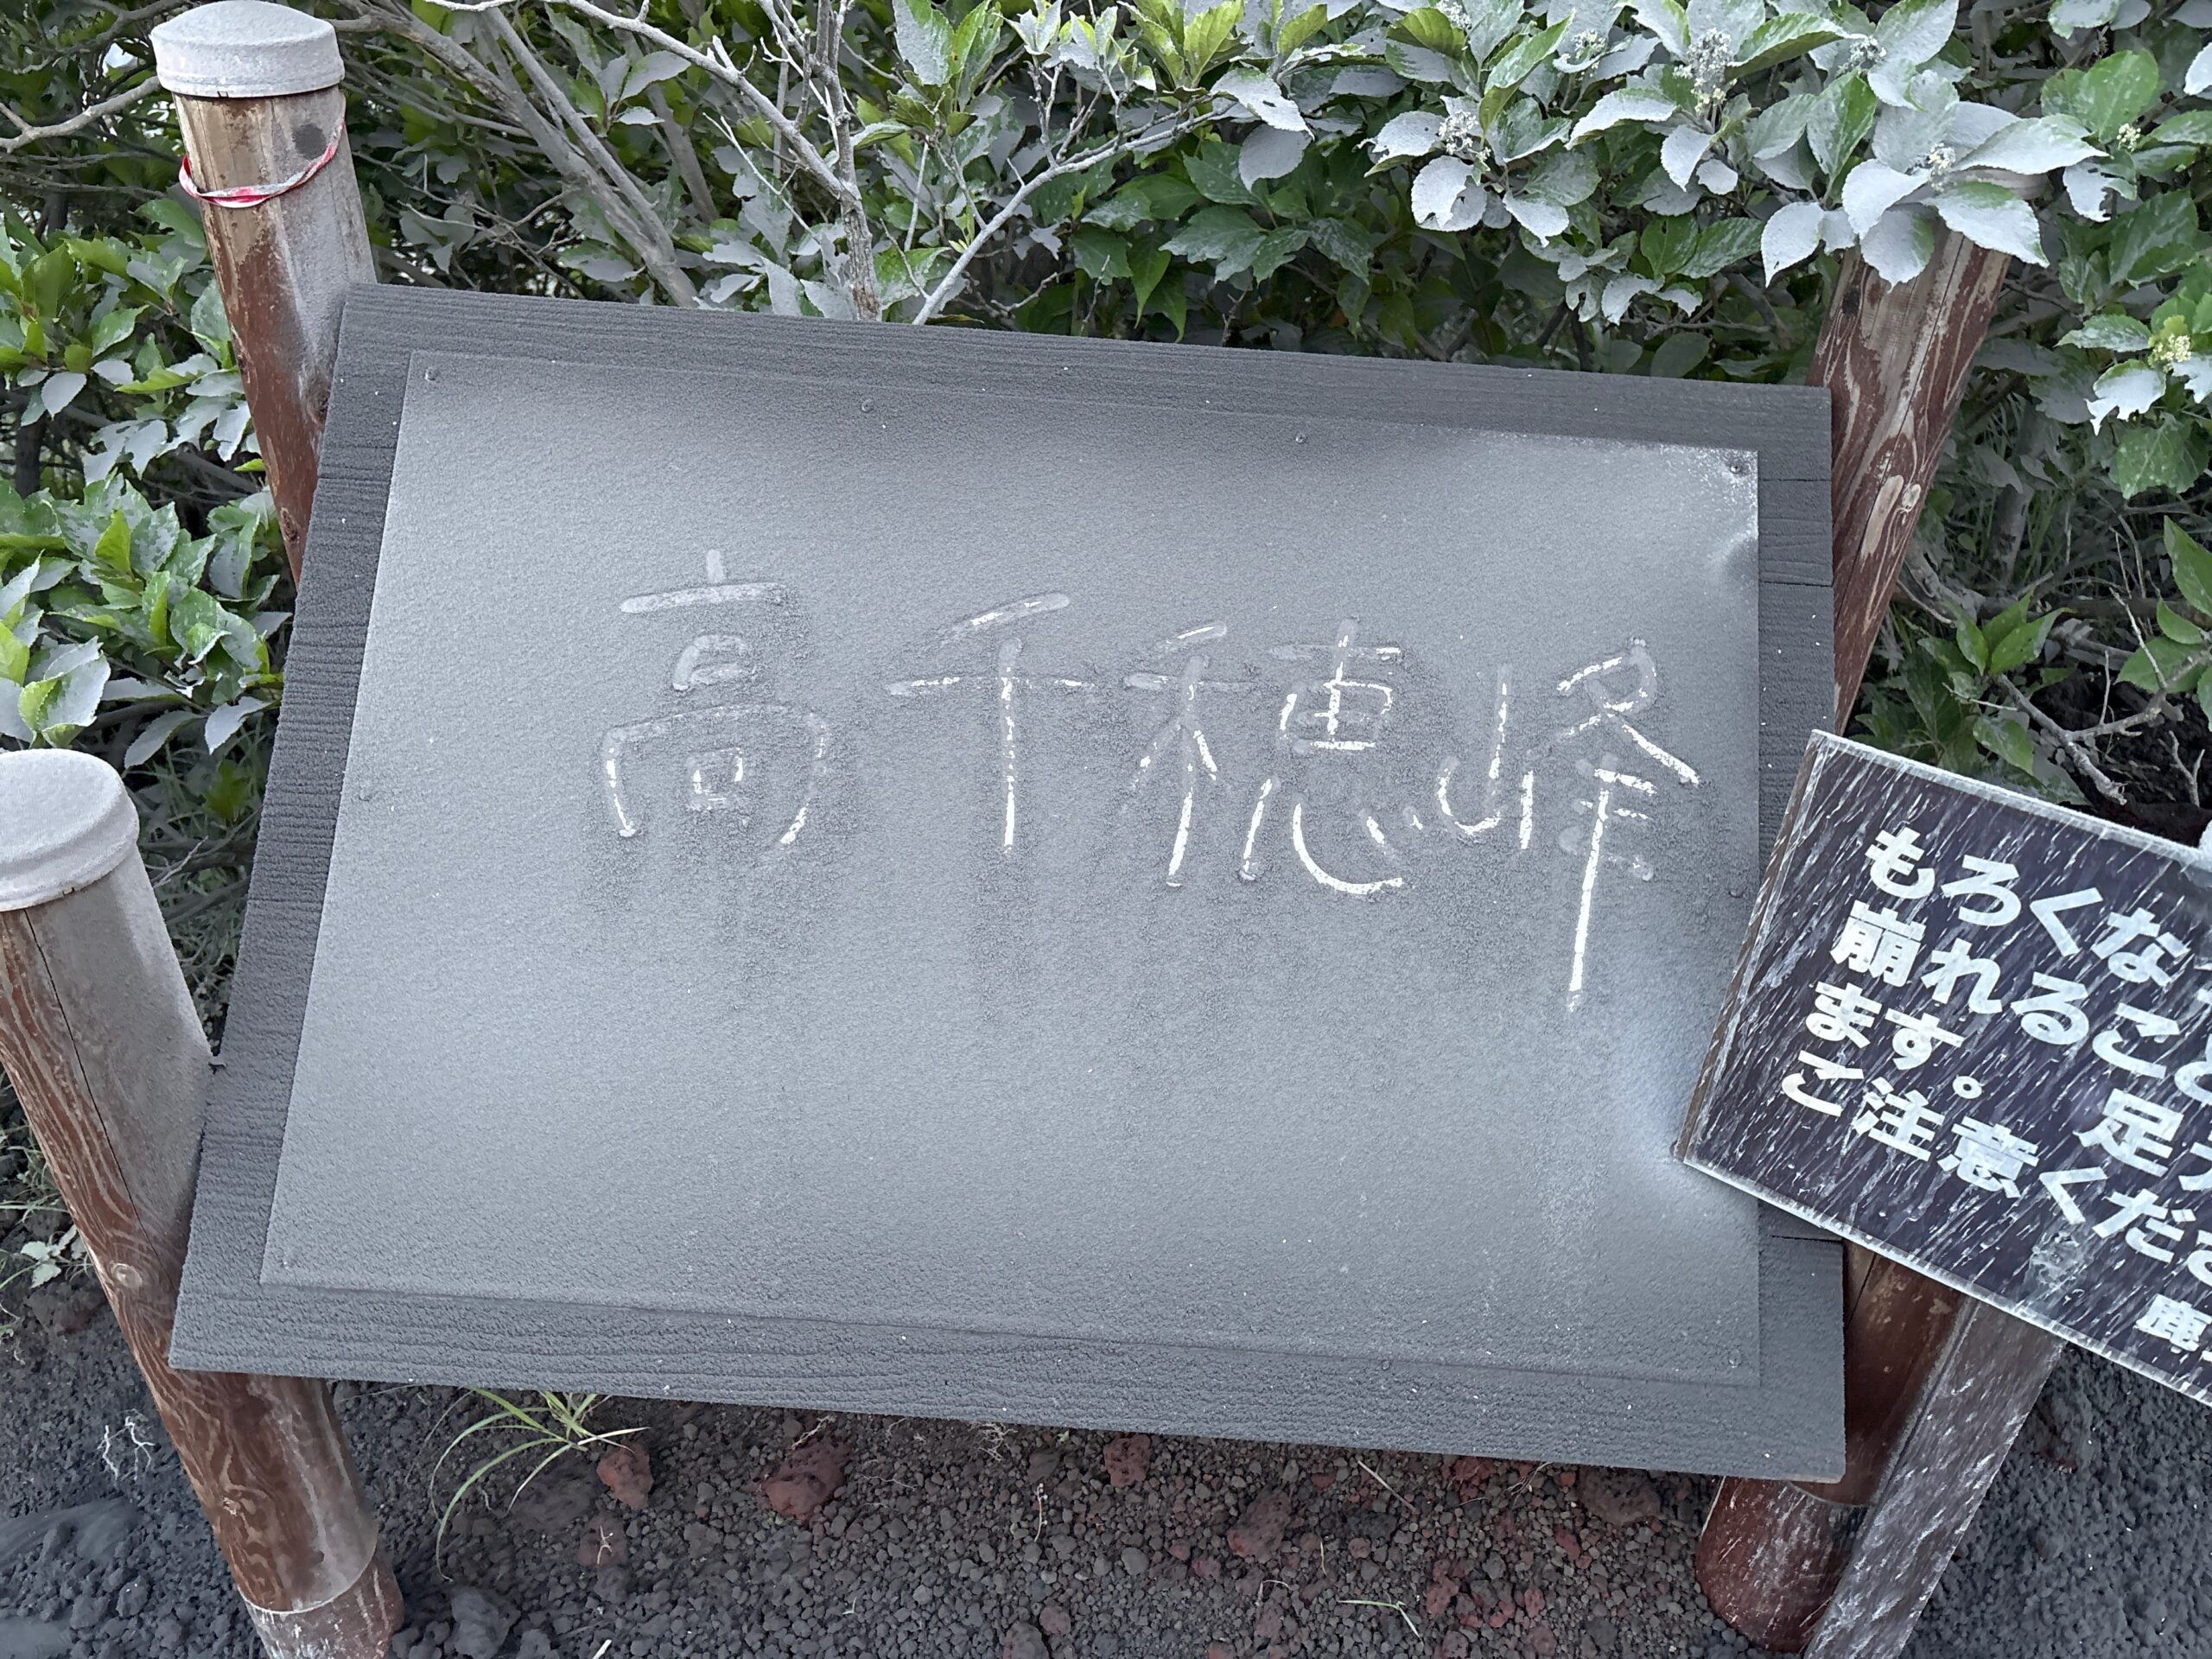 高千穂峰
もろくな
崩れること
ます。足
ご注意くださ